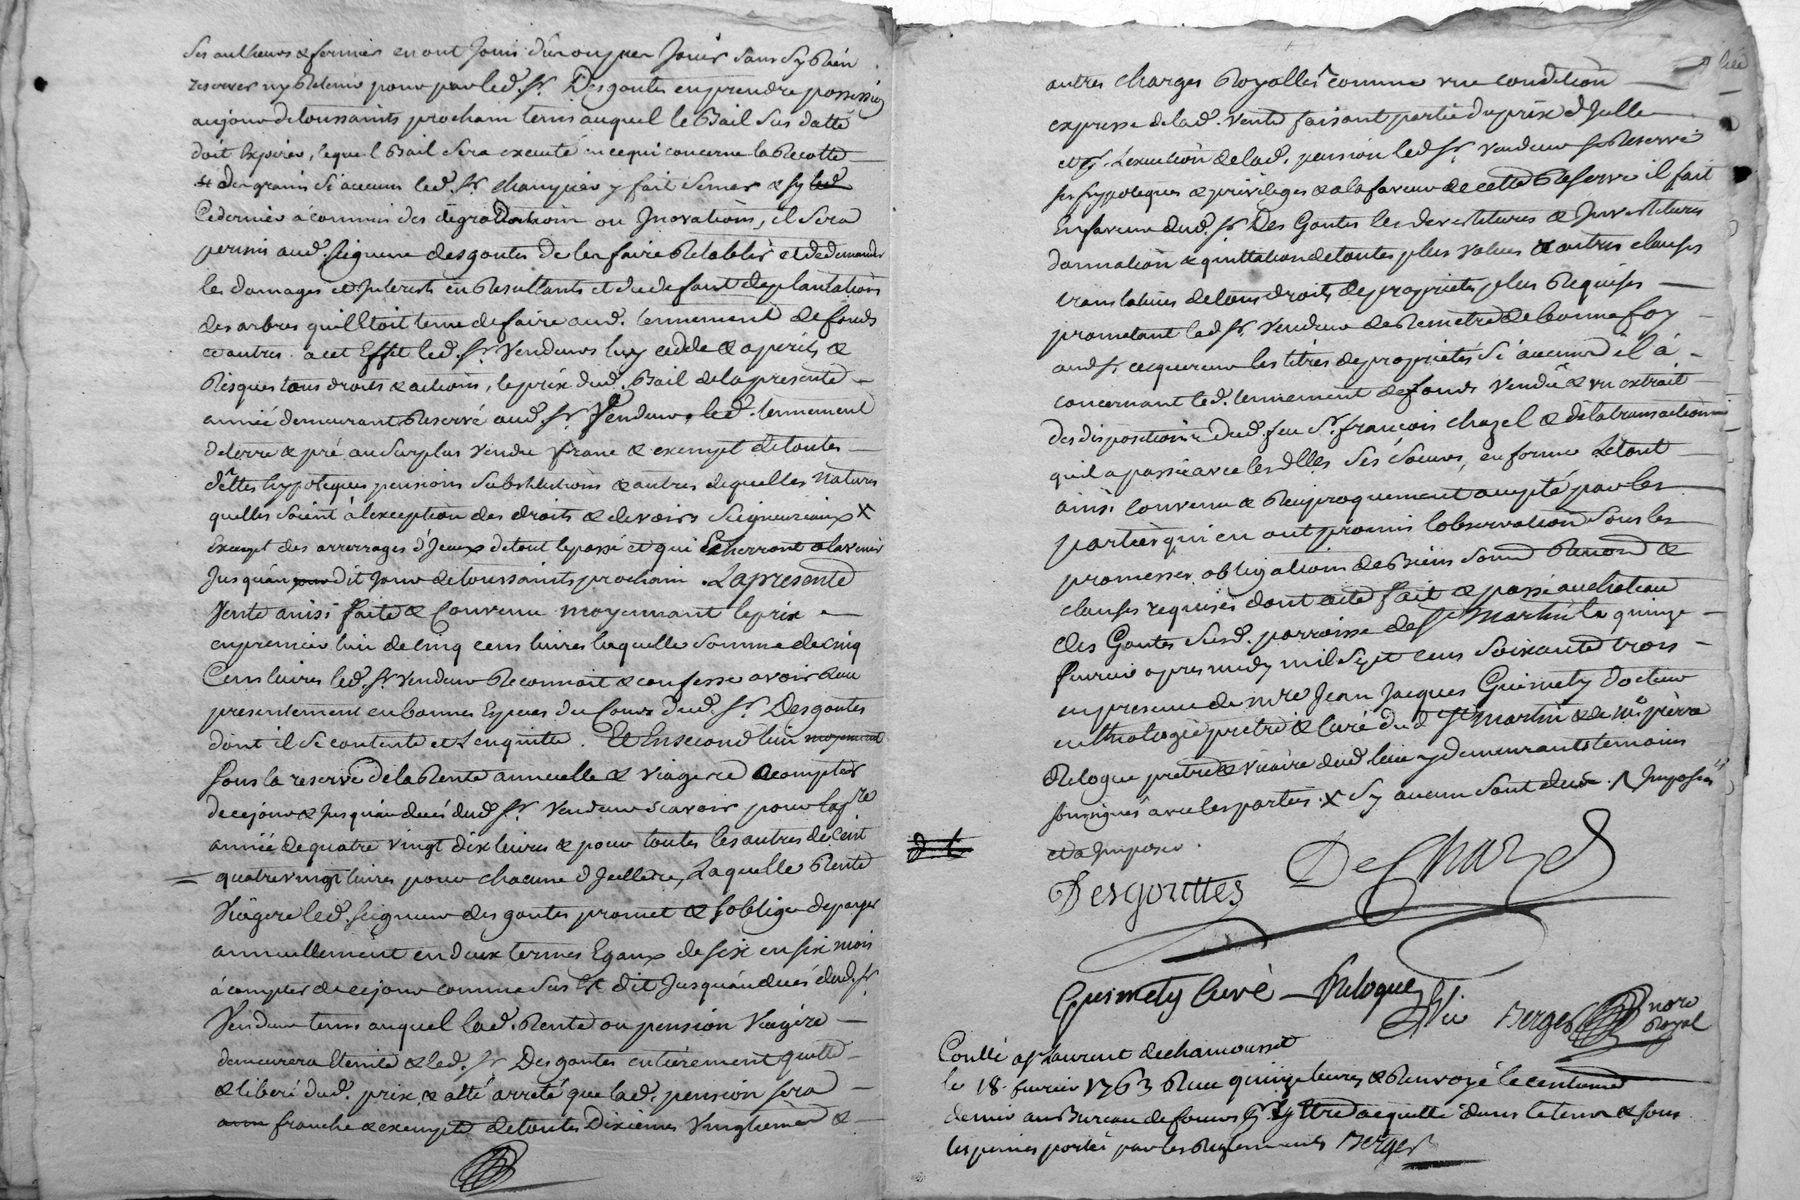 ses autheurs & fermiers en ont joui dû ou peu jouir sans sy Rien
reserver ny Retenir pour par led. Sr. Desgoutes en prendre possession
au jour de toussaints prochain tems auquel le Bail sus datté
doit Expirer, lequel Bail sera executé en ce qui concerne la Recotte
des grains si aucuns led. Sr. y fait semer & sy led
Ce dernier à commis des degradations ou Jnovations, il sera
permis aud. seigneur desgoutes de les faire Retablir et de demander
les domages et Jnterests en Resultants et du defaut de plantations
des arbres quil Etoit tenu de faire aud. tennement de fonds
et autres. a cet Effet led. Sr. Vendeur luy cedde & a perils &
Risques tous droits & actions, le prix dud. Bail de la presente
année demeurant Reservé aud. Sr. Vendeur, led. tennement
de terre & pré au surplus vendu franc & exempt de toutes
dettes hypoteques pensions substitutions & autres de quelles natures
quelles soient à l'exception des droits & devoirs seigneuriaux x
Exempt des arrerages d'Jceux de tout le passé et qui Echerront a lavenir
Jusqu'au dit Jour de toussaints prochain. La presente
Vente ainsi faite & Convenue moyennant le prix
en premier lieu de cinq cens livres laquelle somme de cinq
Cens livres led. Sr. Vendeur Reconnait & confesse avoir Reçu
presentement en bonnes Especes du Cours dud. Sr. Desgoutes
dont il se contente et l'enquitte. Et En second lieu moyennant
sous la reserve de la Rente annuelle & viagere a compter
de ce jour & Jusqu'au decés dud. Sr. Vendeur scavoir pour la pre
année de quatre vingt dix livres & pour toutes les autres de Cent
quatre vingt livres pour chacune d'Jcelles, Laquelle Rente
Viagere led. seigneur des goutes promet & s'oblige de payer
annuellement en deux termes Egaux de six en six mois
à compter de ce jour comme sus Est dit Jusqu'au decés dud. Sr.
Vendeur tems auquel lad. Rente ou pension Viagère
demeurera Eteinte & led. Sr. Des goutes entierement quitte
& liberé dud. prix, & a eté arreté que lad. pension sera
franche & exempte de toutes Dixiemes Vingtiemes &
autres charges Royalles comme une condition
expresse de lad. vente faisant partie du prix d'Jcelle
et p. L'exécution de lad. pension led. Sr. Vendeur se Reserve
ses hypoteques & privileges & a la faveur de cette Reserve il fait
En faveur dud. Sr. Des Goutes les devestitures & Jnvestitures
donnation & quittation de toutes plus values & autres clauses
translatives de tous droits de propriétés plus Requises
promettant led. Sr. Vendeur de Remettre de bonne foy
aud. Sr. acquereur les titres de propriétés si aucuns il à
concernant led. tennement de fonds vendu & un extrait
des dispositions dud. feu Sr. françois chazel & de la transaction
quil a passé avec les dlles ses soeurs, en forme Le tout
ainsi Convenu & Reciproquement accepté par les
parties qui en ont promis l'observation sous les
promesses obligations de Biens soumd. Renond. &
clauses requises dont acte fait & passé au chateau
des Goutes susd. parroisse de St Martin le quinze
fevrier apres midy mil sept cens soixante trois
en presence de mre Jean Jacques Guimety docteur
en theologie prêtre & Curé dud. St martin & de Mre pierre
Reloque prêtre & vicaire dud. lieu y demeurants temoins
soussignés avec les parties. x sy aucuns sont dus. Imposées
et a Imposer.
Desgouttes DeChazel
Guimety Curé — Reloque vic Berger nore Royal
Conllé a St Laurent de chamousset
le 18. fevrier 1763 Reçu quinze livres & Renvoyé le centieme
denier au Bureau de
les peines portées par les Reglements Berger